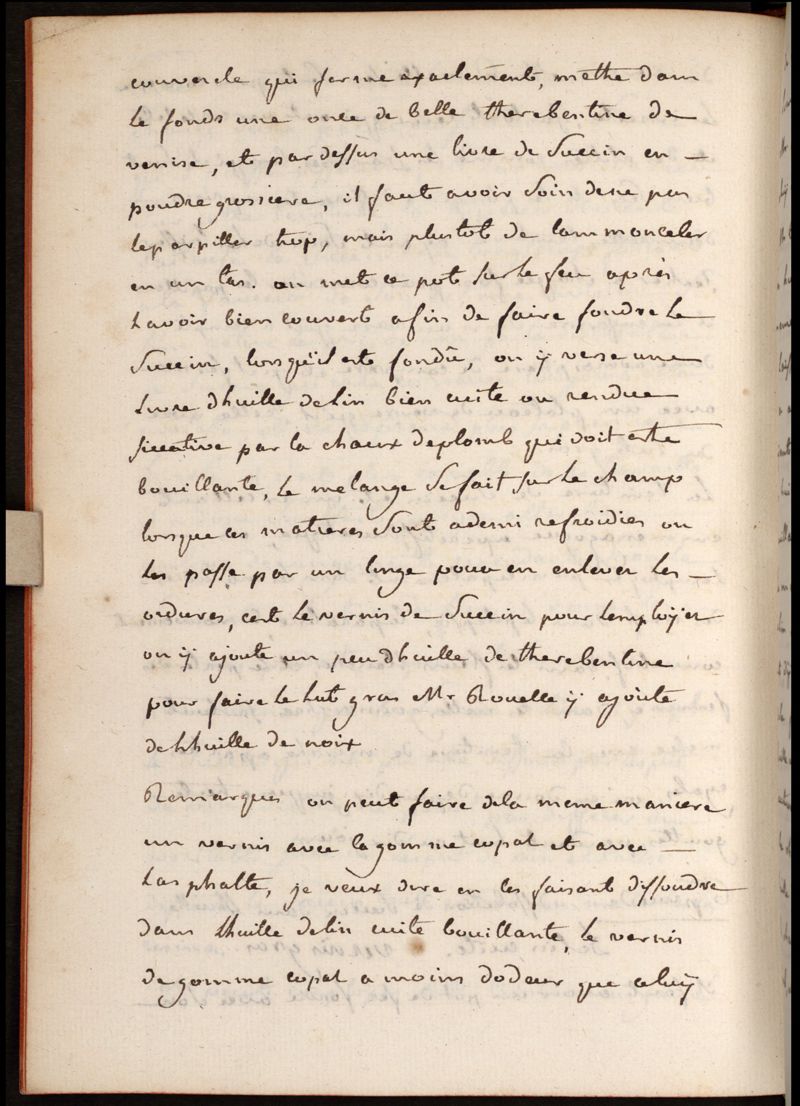 couvercle qui ferme exactement, methe dans
le fonds une once de belle therebentine de
venise, et par dessus une livre de Succin en —
poudre grossiere, il faut avoir soin dene pas
leparpiller trop, mais plustot de lammonceler
en un tas. on met ce pot sur le feu après
Lavoir bien couvert afin de faire fondre Le
Succin, lorsqu'il est fondû, on ÿ verse une
Livre dhuille delin bien cuite ou rendue
siccative par la chaux deplomb qui doit estre
bouillante, Le melange Se fait Sur Le champ
lorsque ces matieres Sont ademi refroidies on
Les passe par un linge pour en enlever Les —
ordures, cest Le vernis de Succin pour Lemploÿer
on ÿ ajoute un peu dhuille de therebentine
pour faire Le Lut gras Mr Rouelle ÿ ajoute
de Lhuille de noix
Remarques on peut faire dela meme maniere
un vernis avec la gomme copal et avec —
Lasphalte, je veux dire en les faisant dissoudre
dans Lhuille delin cuite bouillante, Le vernis
de gomme copal a moins dodeur que celuÿ